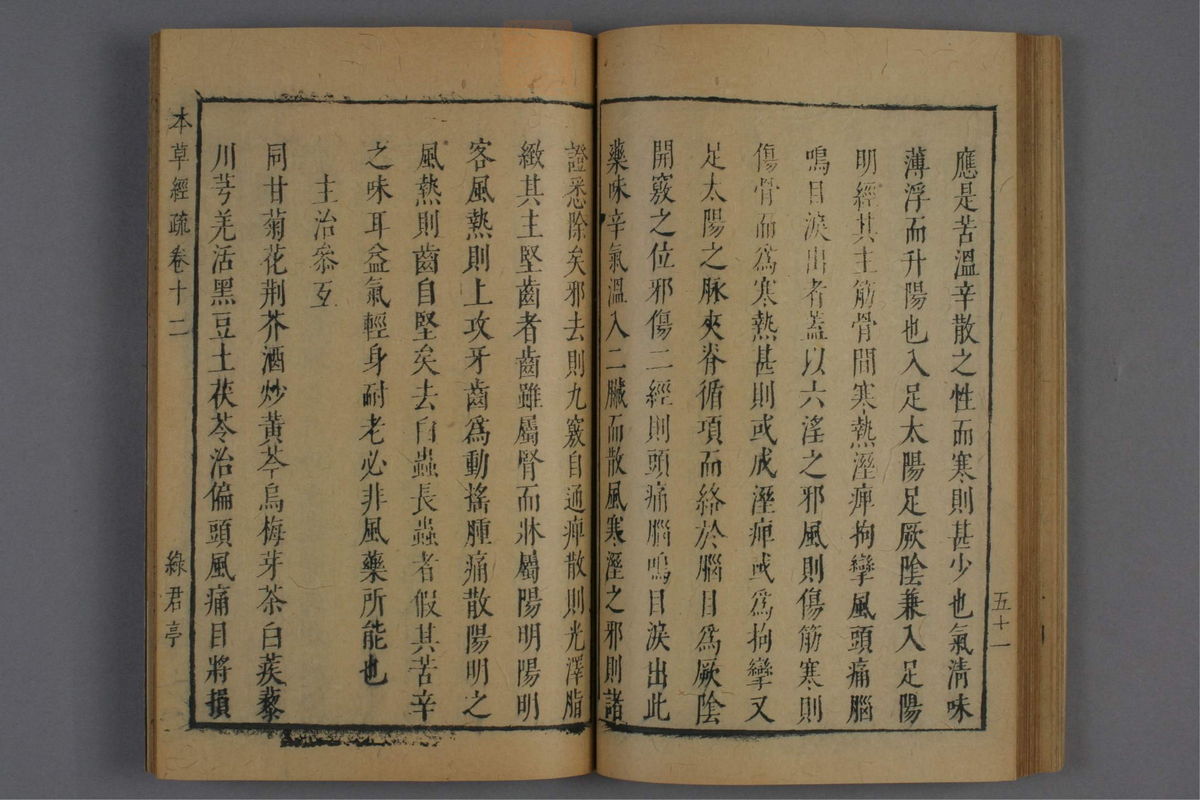 應是苦溫辛散之性而寒則甚少也氣清味
薄浮而升陽也入足太陽足厥陰兼入足陽
明經其主筋骨間寒熱溼痺拘攣風頭痛腦
鳴目淚出者蓋以六淫之邪風則傷筋寒則
傷骨而爲寒熱甚則或成溼痺或爲拘攣又
足太陽之脉夾脊循項而絡於腦目爲厥陰
開竅之位邪傷二經則頭痛腦鳴目淚出此
藥味辛氣溫入二臟而散風寒溼之邪則諸
證悉除矣邪去則九竅自通痺散則光澤脂
緻其主堅齒者齒雖屬腎而牀屬陽明陽明
客風熱則上攻牙齒爲動搖腫痛散陽明之
風熱則齒自堅矣去白蟲長蟲者假其苦辛
之味耳益氣輕身耐老必非風藥所能也
主治叅互
同甘菊花荆芥酒炒黃芩烏梅芽茶白蒺藜
川芎羌活黑豆土茯苓治偏頭風痛目將損
五十一
本草經疏卷十二
綠君亭